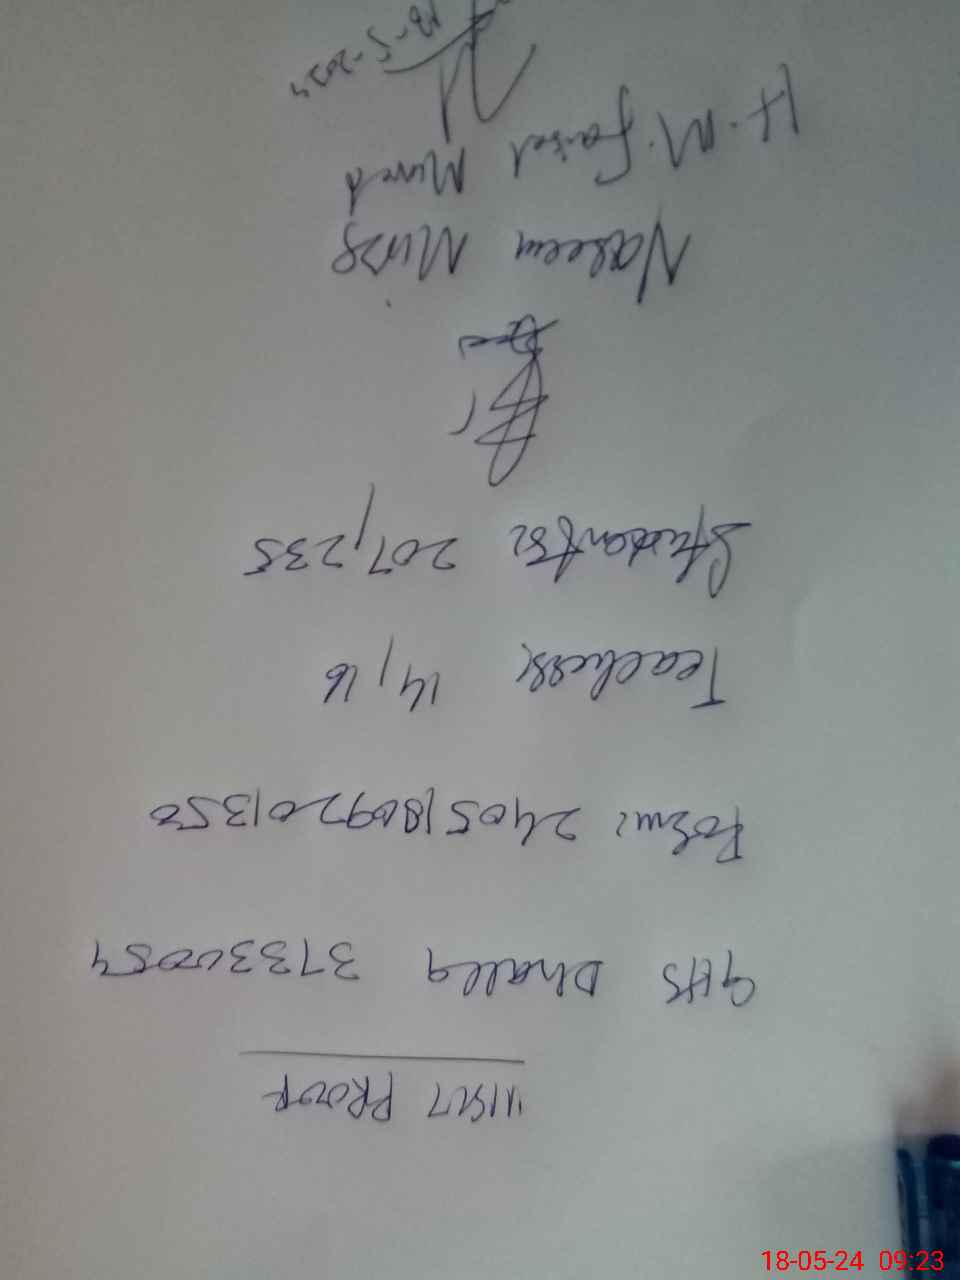 VISIT PROOF
GHS Dhalla 37330054
Form: 24051809201350
Teachers: 14, 16
Students: 207, 235
Naseem Mirza
H.M. Faisal Murad
18-5-2024
18-05-24 09:23